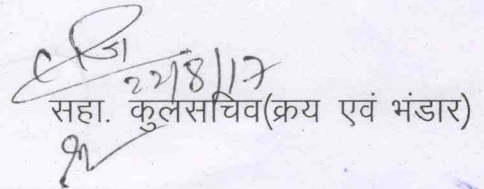 22/8/17
सहा. कुलसचिव(क्रय एवं भंडार)